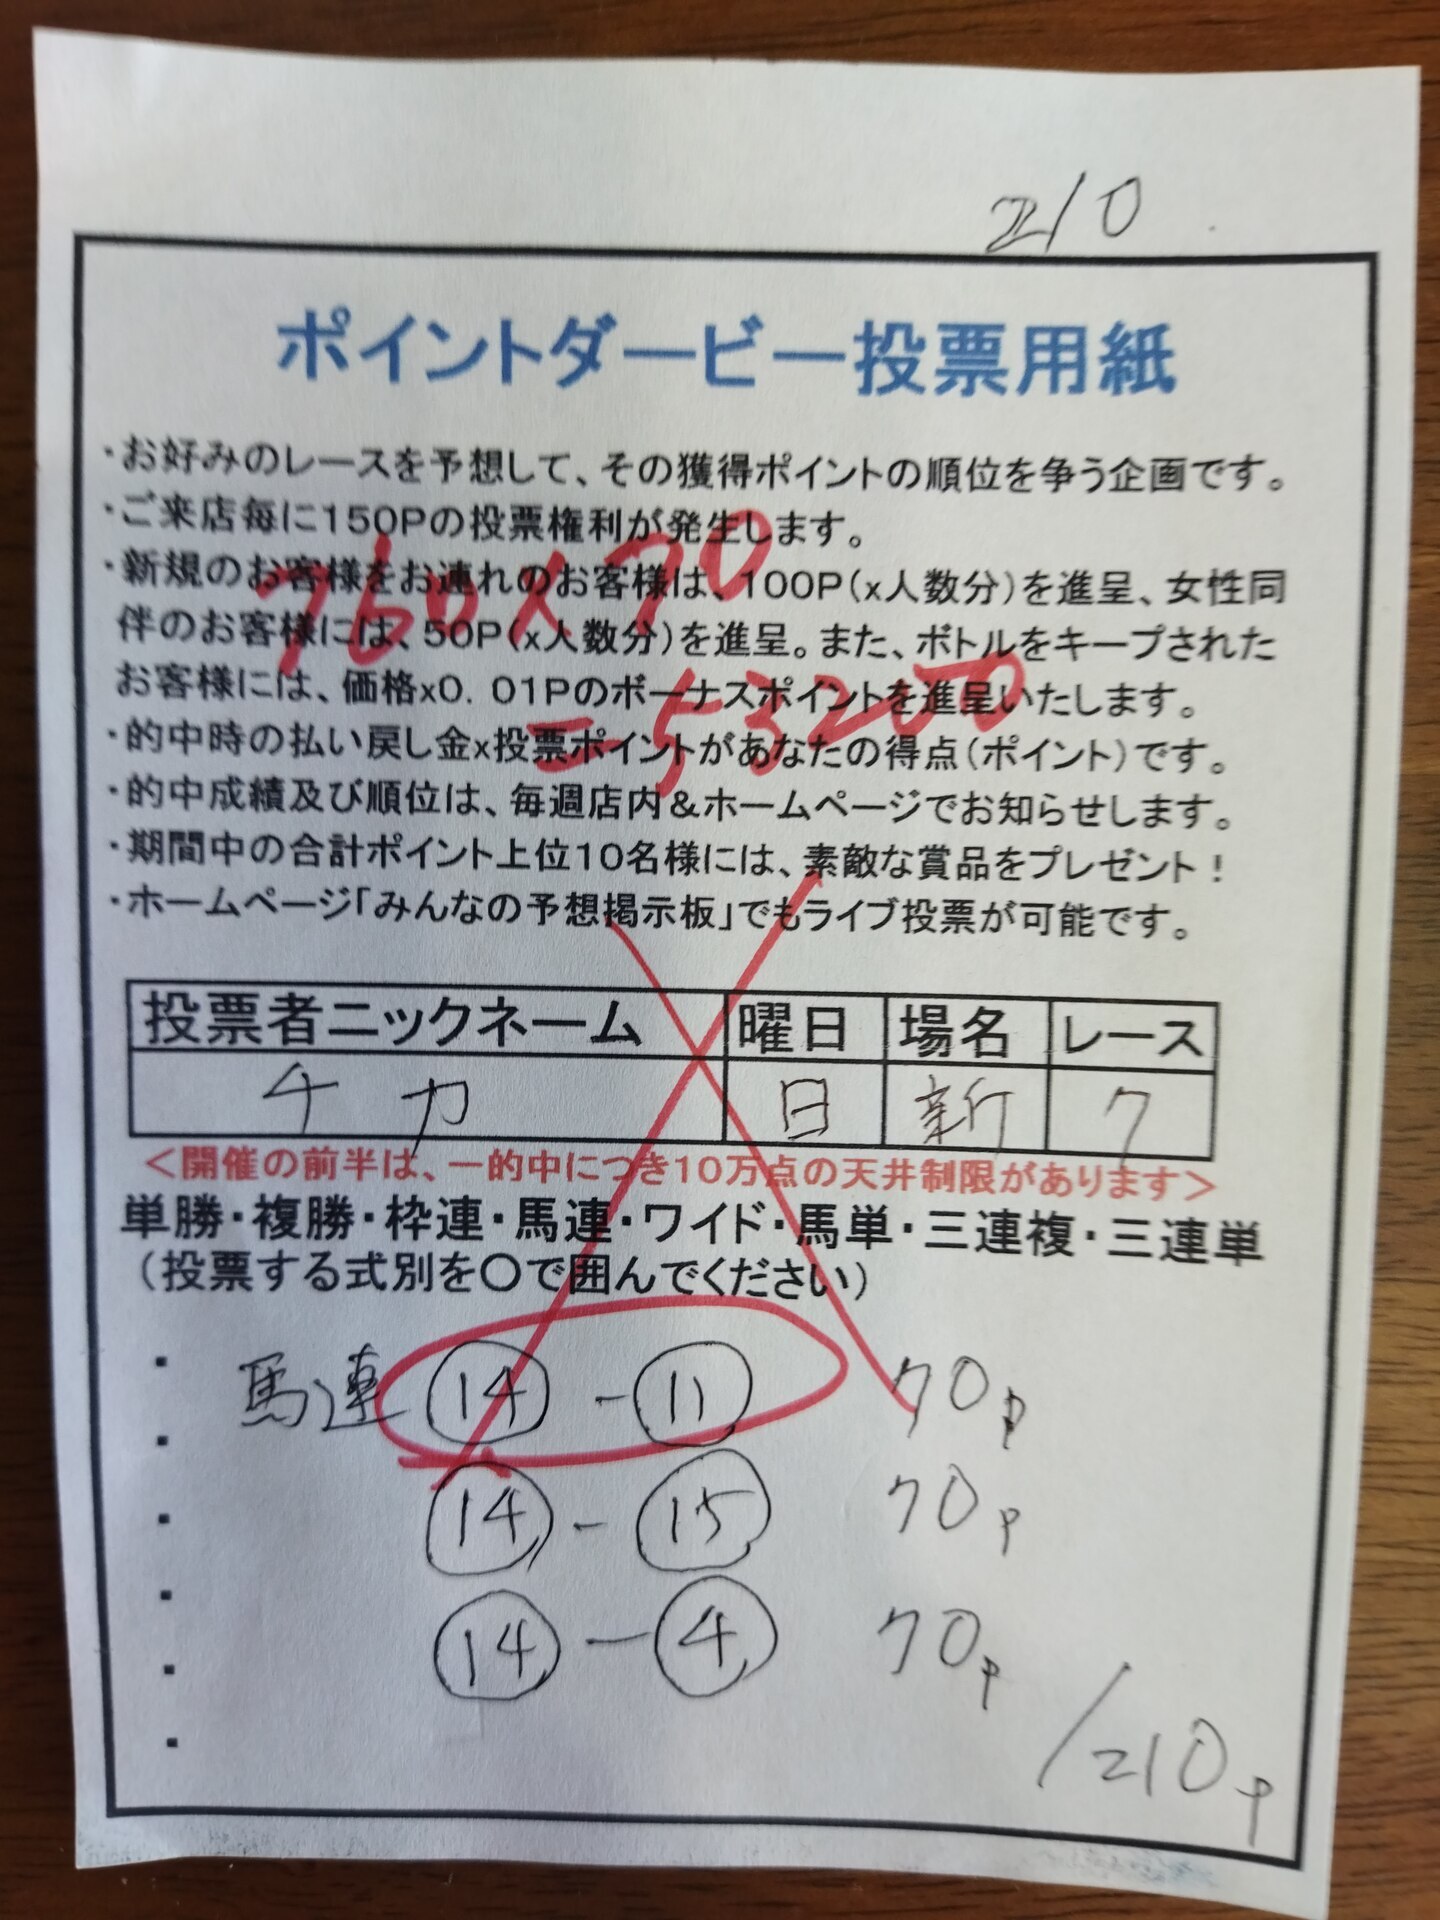 210
ポイントダービー投票用紙
・お好みのレースを予想して、その獲得ポイントの順位を争う企画です。
・ご来店毎に150Pの投票権利が発生します。
・新規のお客様をお連れのお客様は、100P(x人数分)を進呈、女性同
伴のお客様には、50P(x人数分)を進呈。また、ボトルをキープされた
お客様には、価格x0.01Pのボーナスポイントを進呈いたします。
・的中時の払い戻し金x投票ポイントがあなたの得点(ポイント)です。
・的中成績及び順位は、毎週店内&ホームページでお知らせします。
・期間中の合計ポイント上位10名様には、素敵な賞品をプレゼント!
・ホームページ「みんなの予想掲示板」でもライブ投票が可能です。
760×70
=53200
投票者ニックネーム 曜日 場名 レース
チカ 日 新 7
<開催の前半は、一的中につき10万点の天井制限があります>
単勝・複勝・枠連・馬連・ワイド・馬単・三連複・三連単
(投票する式別を〇で囲んでください)
馬連 ⑭-⑪ 70p
⑭-⑮ 70p
⑭-④ 70p
/210p